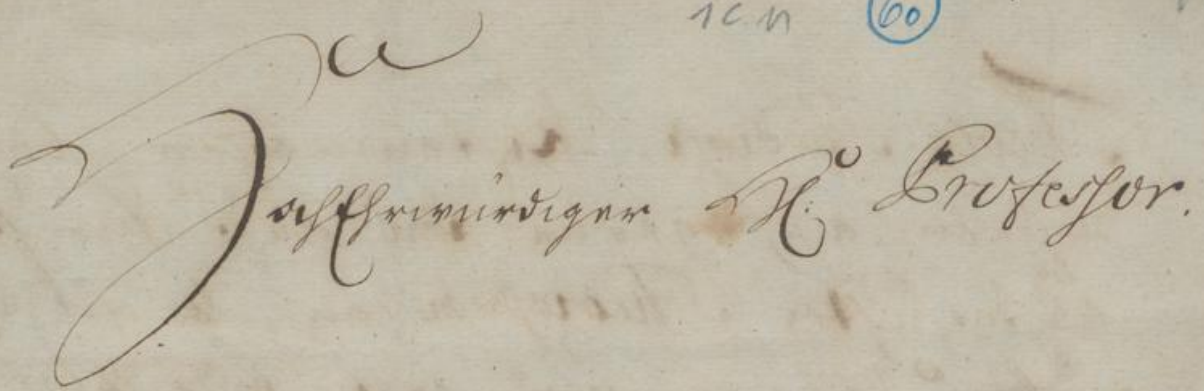 1C11 60
HochEhrwürdiger H. Professor.